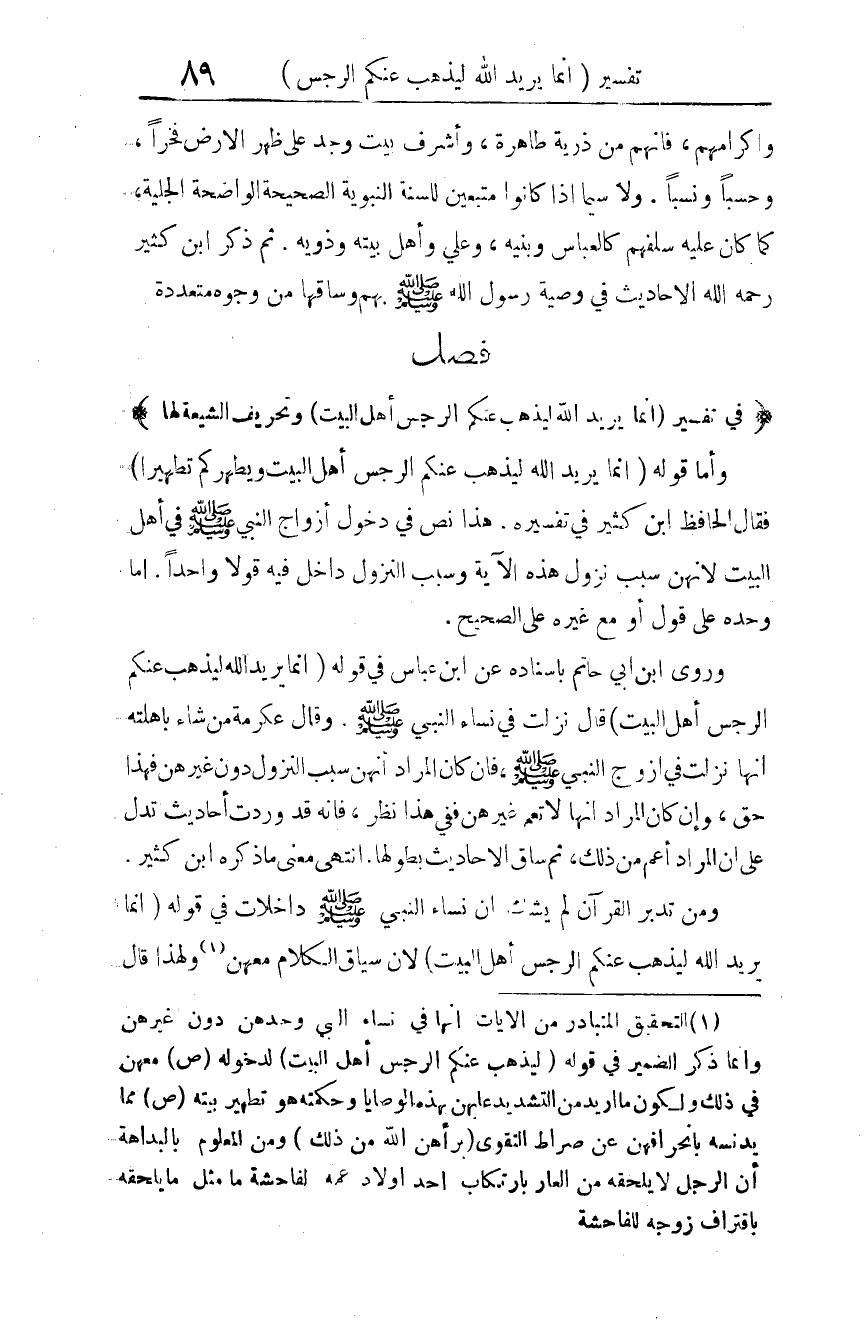 تفسير ( انما يريد الله ليذهب عنكم الرجس ) ٨٩
واكرامهم ، فانهم من ذرية طاهرة ، وأشرف بيت وجد على ظهر الارض فخراً ،
وحسباً ونسباً . ولا سيما اذا كانوا متبعين للسنة النبوية الصحيحة الواضحة الجلية،
كما كان عليه سلفهم كالعباس وبنيه ، وعلي وأهل بيته وذويه . ثم ذكر ابن كثير
رحمه الله الاحاديث في وصية رسول الله ﷺ بهم وساقها من وجوه متعددة
فصل
﴿ في تفسير (انما يريد الله ليذهب عنكم الرجس أهل البيت) وتحريف الشيعة لها ﴾
وأما قوله ( انما يريد الله ليذهب عنكم الرجس أهل البيت ويطهركم تطهيرا)
فقال الحافظ ابن كثير في تفسيره . هذا نص في دخول أزواج النبي ﷺ في أهل
البيت لانهن سبب نزول هذه الآية وسبب النزول داخل فيه قولا واحداً . اما
وحده على قول أو مع غيره على الصحيح .
وروى ابن ابي حاتم باسناده عن ابن عباس في قوله ( انما يريد الله ليذهب عنكم
الرجس أهل البيت) قال نزلت في نساء النبي ﷺ . وقال عكرمة من شاء باهلته
انها نزلت في ازوج النبي ﷺ ، فان كان المراد أنهن سبب النزول دون غيرهن فهذا
حق ، وإن كان المراد انها لا تعم غيرهن ففي هذا نظر ، فانه قد وردت أحاديث تدل
على ان المراد أعم من ذلك، ثم ساق الاحاديث بطولها. انتهى معنى ما ذكره ابن كثير .
ومن تدبر القرآن لم يشك ان نساء النبي ﷺ داخلات في قوله ( انما
يريد الله ليذهب عنكم الرجس أهل البيت) لان سياق الكلام معهن (١) ولهذا قال
(١) التحقيق المتبادر من الايات انها في نساء النبي وحدهن دون غيرهن
وانما ذكر الضمير في قوله ( ليذهب عنكم الرجس أهل البيت) لدخوله (ص) معهن
في ذلك ولكون ما اريد من التشديد عليهن بهذه الوصايا وحكمته هو تطهير بيته (ص) مما
يدنسه بانحرافهن عن صراط التقوى (برأهن الله من ذلك ) ومن المعلوم بالبداهة
أن الرجل لا يلحقه من العار بارتكاب احد اولاد عمه لفاحشة ما مثل ما يلحقه
باقتراف زوجه للفاحشة